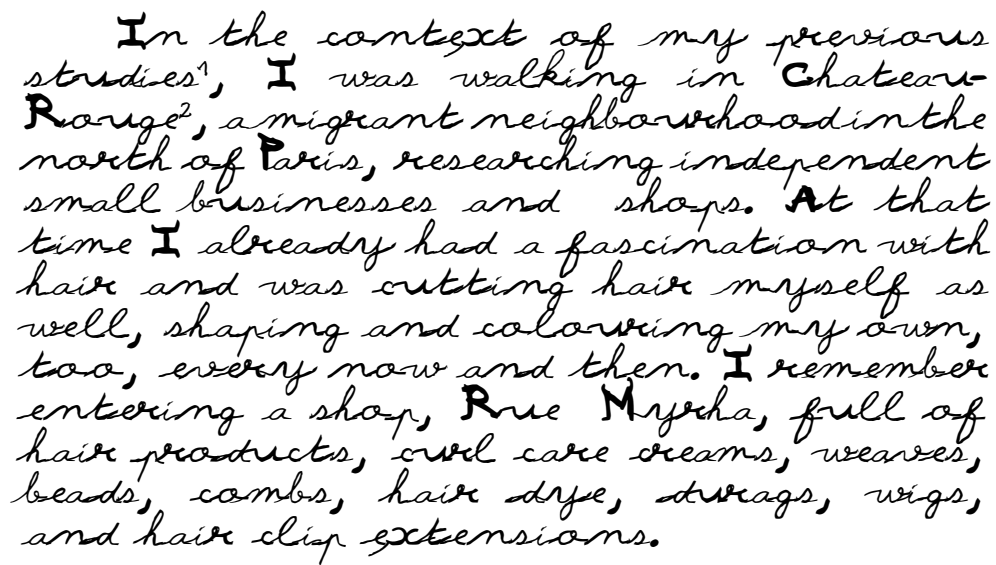 In the context of my previous
studies¹, I was walking in Chateau-
Rouge², a migrant neighbourhood in the
north of Paris, researching independent
small businesses and shops. At that
time I already had a fascination with
hair and was cutting hair myself as
well, shaping and colouring my own,
too, every now and then. I remember
entering a shop, Rue Myrha, full of
hair products, curl care creams, weaves,
beads, combs, hair dye, durags, wigs,
and hair clip extensions.